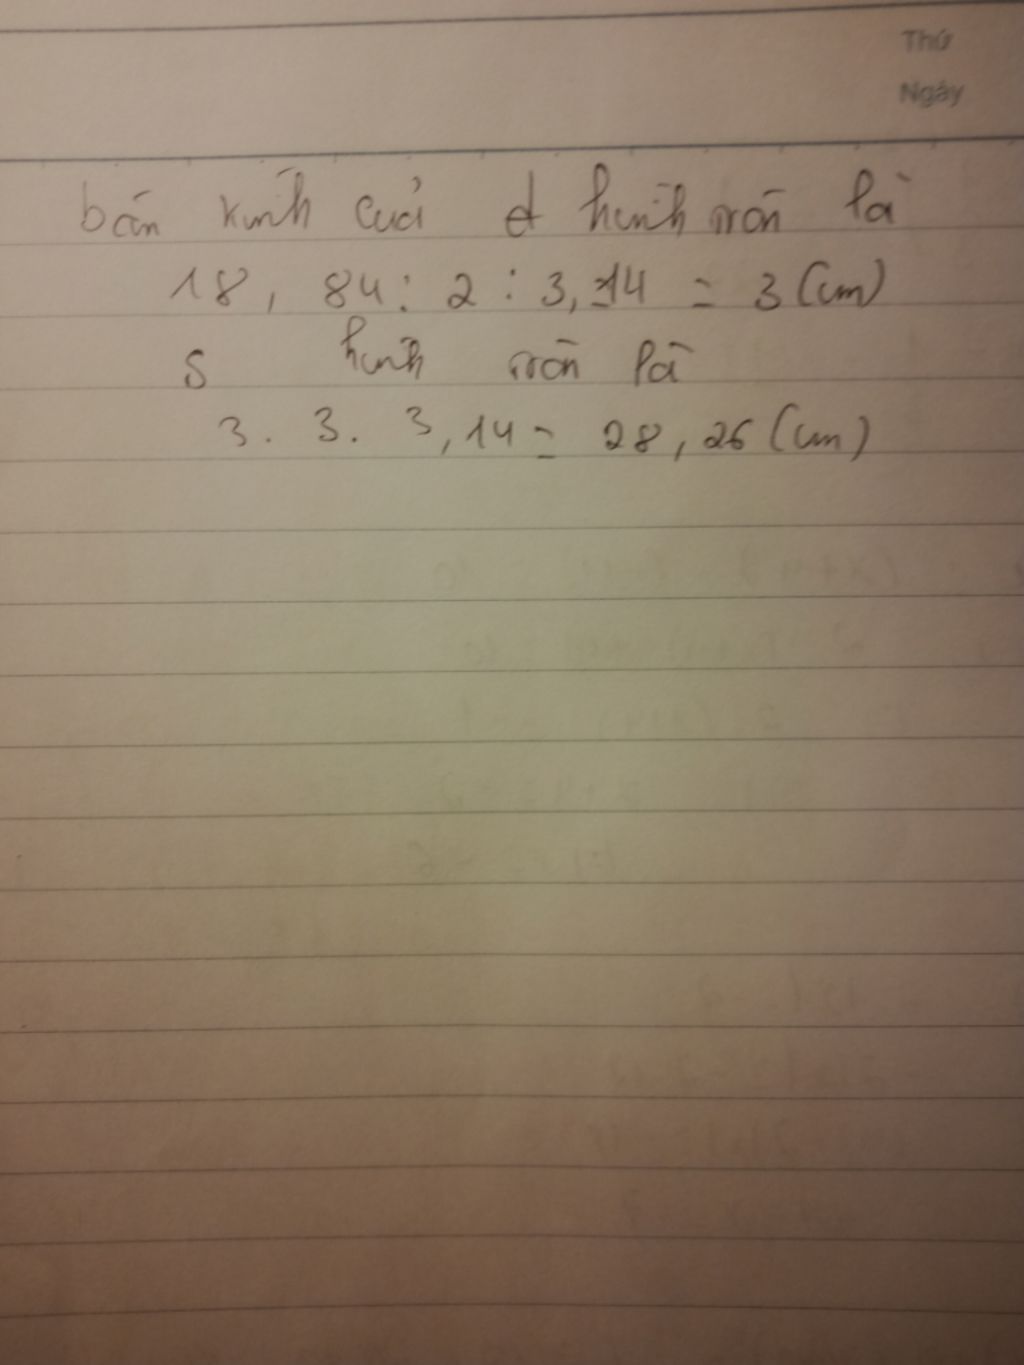 Thứ
Ngày
bán kính của hình tròn là
18, 84 : 2 : 3, 14 = 3 (cm)
S hình tròn là
3. 3. 3, 14 = 28, 26 (cm)